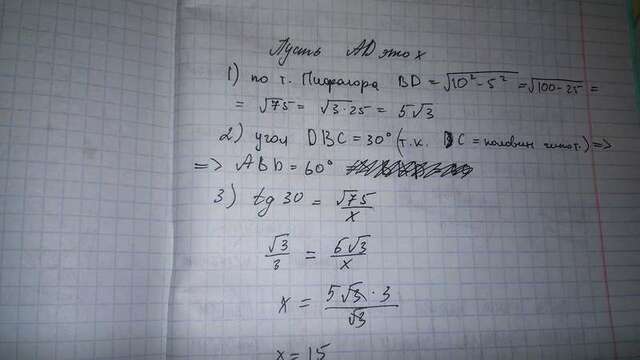 Пусть AD это x
1) по т. Пифагора BD = √(10² - 5²) = √(100 - 25) =
= √75 = √(3·25) = 5√3
2) угол DBC = 30° (т.к. DC = половин гипот.) =>
=> ABD = 60°
3) tg 30 = √75/x
√3/3 = 5√3/x
x = 5√3·3/√3
x = 15